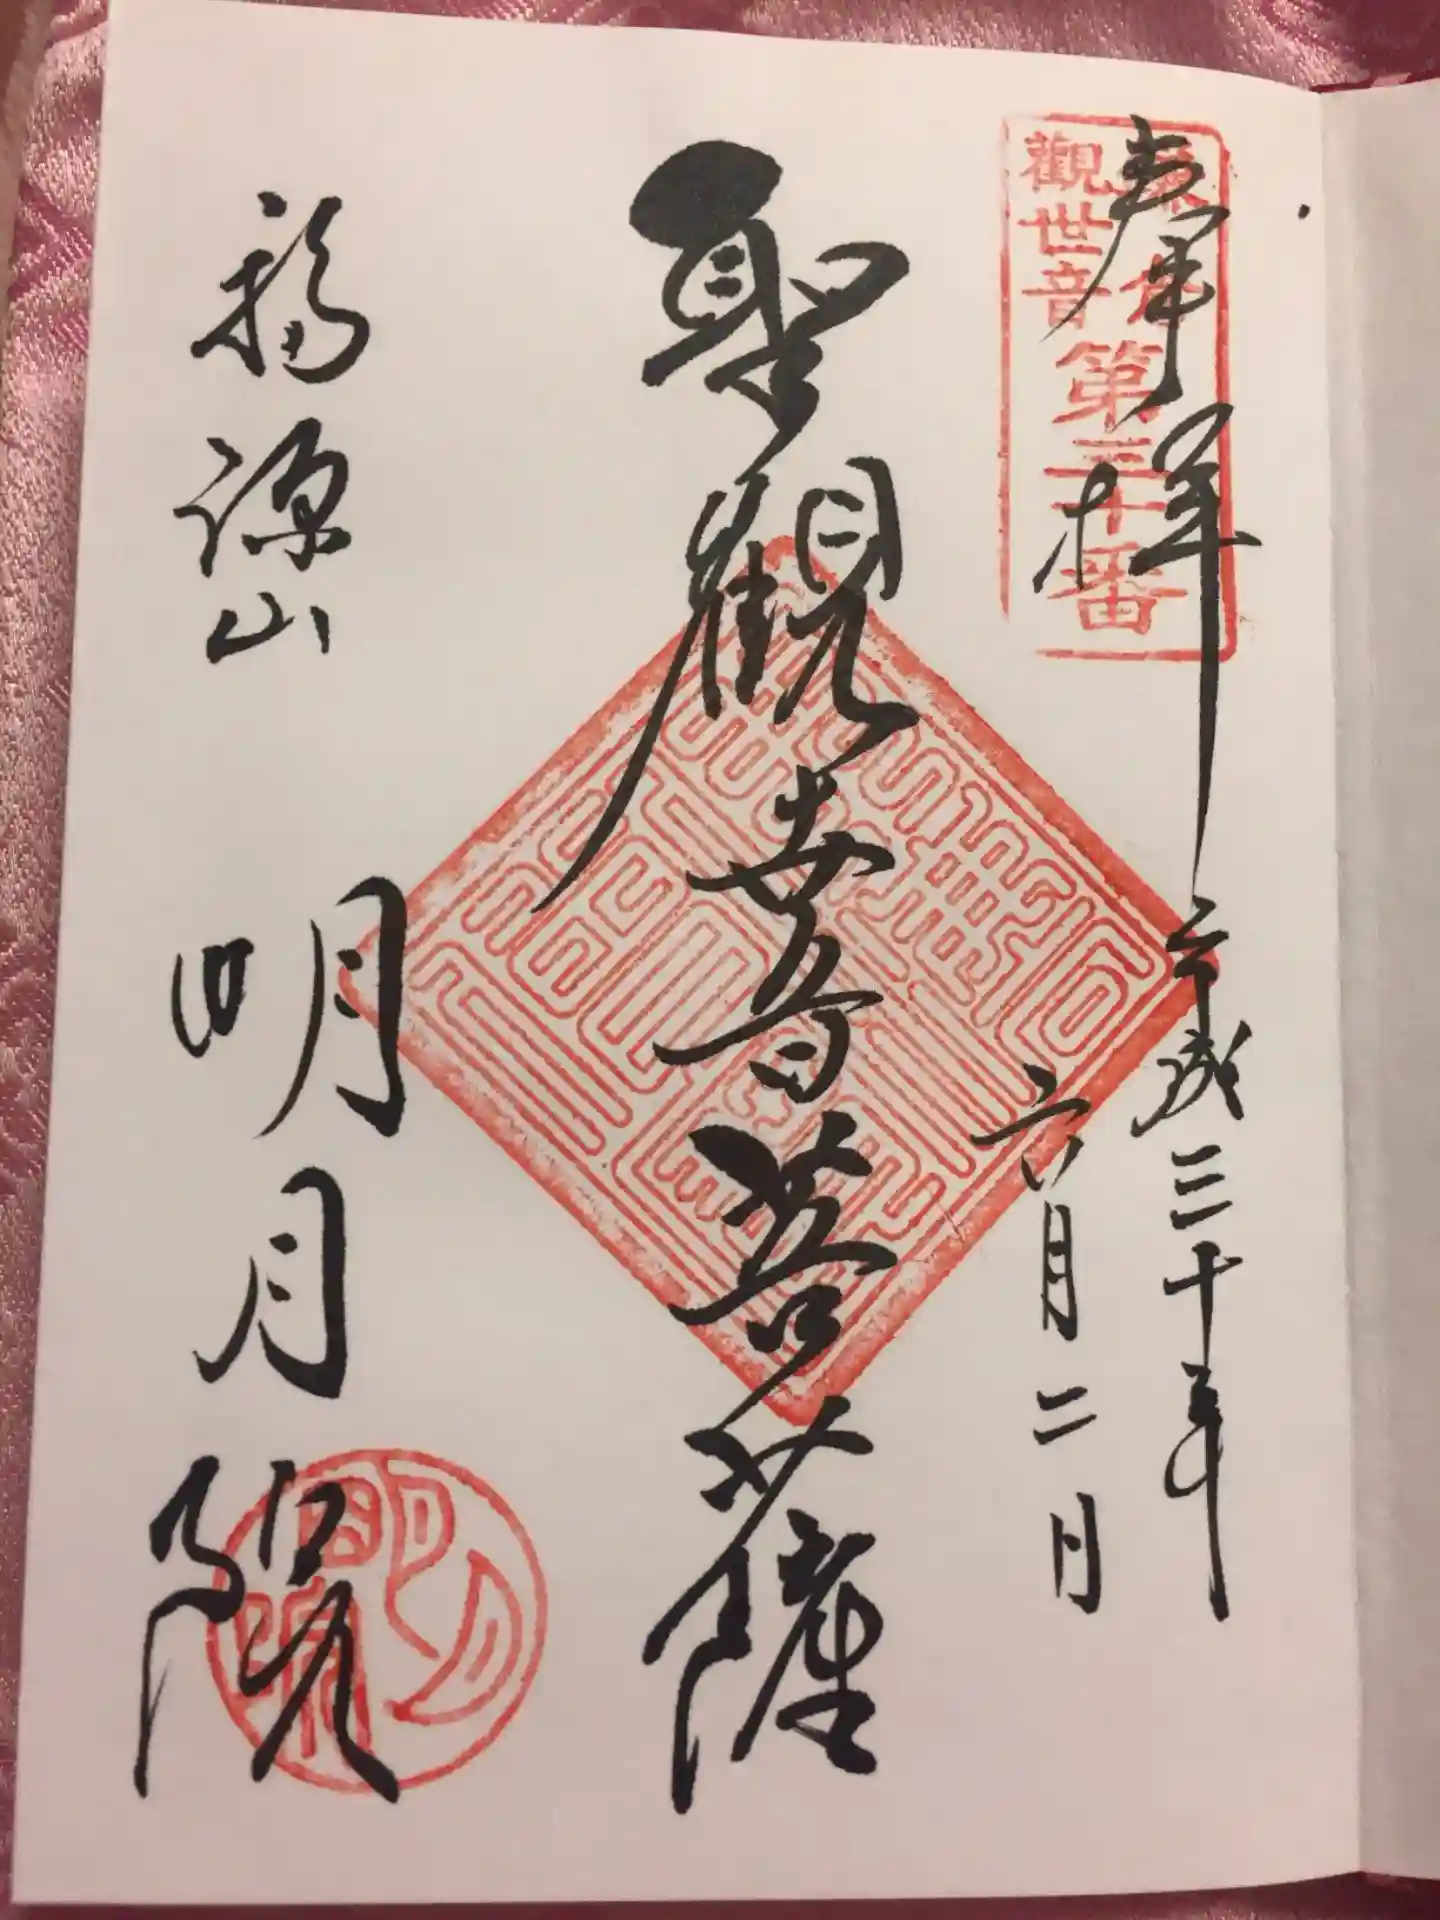 奉拝
鎌倉
觀世音
第三十番
平成三十年
六月二日
聖觀世音菩薩
福源山
明月院